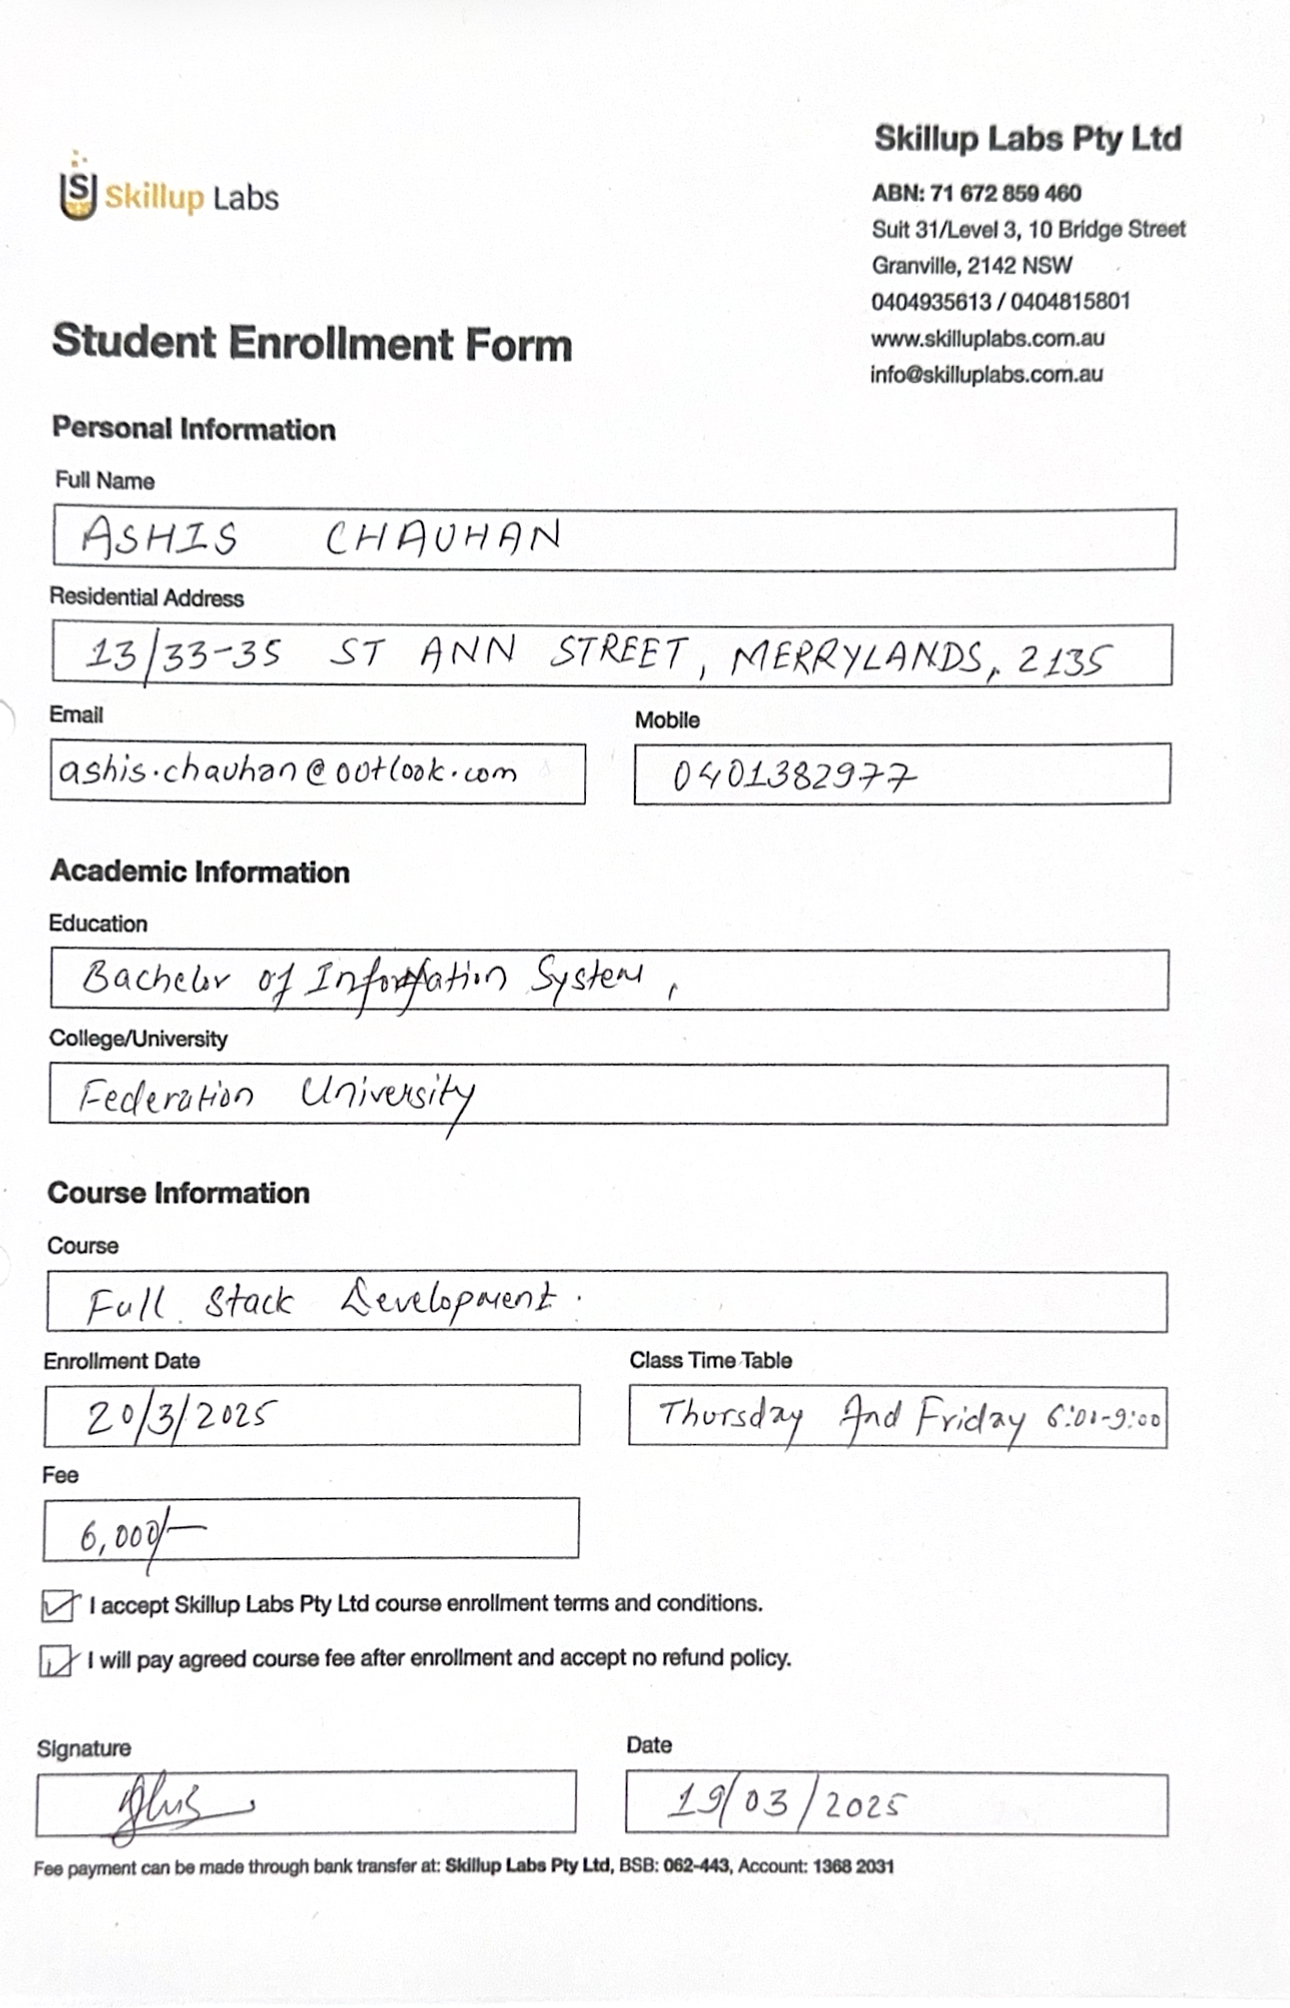 Skillup Labs
Skillup Labs Pty Ltd
ABN: 71 672 859 460
Suit 31/Level 3, 10 Bridge Street
Granville, 2142 NSW
0404935613 / 0404815801
www.skilluplabs.com.au
info@skilluplabs.com.au
Student Enrollment Form
Personal Information
Full Name
ASHIS CHAUHAN
Residential Address
13/33-35 ST ANN STREET, MERRYLANDS, 2135
Email
Mobile
ashis.chauhan@outlook.com
0401382977
Academic Information
Education
Bachelor of Information System,
College/University
Federation University
Course Information
Course
Full Stack Development.
Enrollment Date
Class Time Table
20/3/2025
Thursday And Friday 6:00-9:00
Fee
6,000/-
I accept Skillup Labs Pty Ltd course enrollment terms and conditions.
I will pay agreed course fee after enrollment and accept no refund policy.
Signature
Date
19/03/2025
Fee payment can be made through bank transfer at: Skillup Labs Pty Ltd, BSB: 062-443, Account: 1368 2031